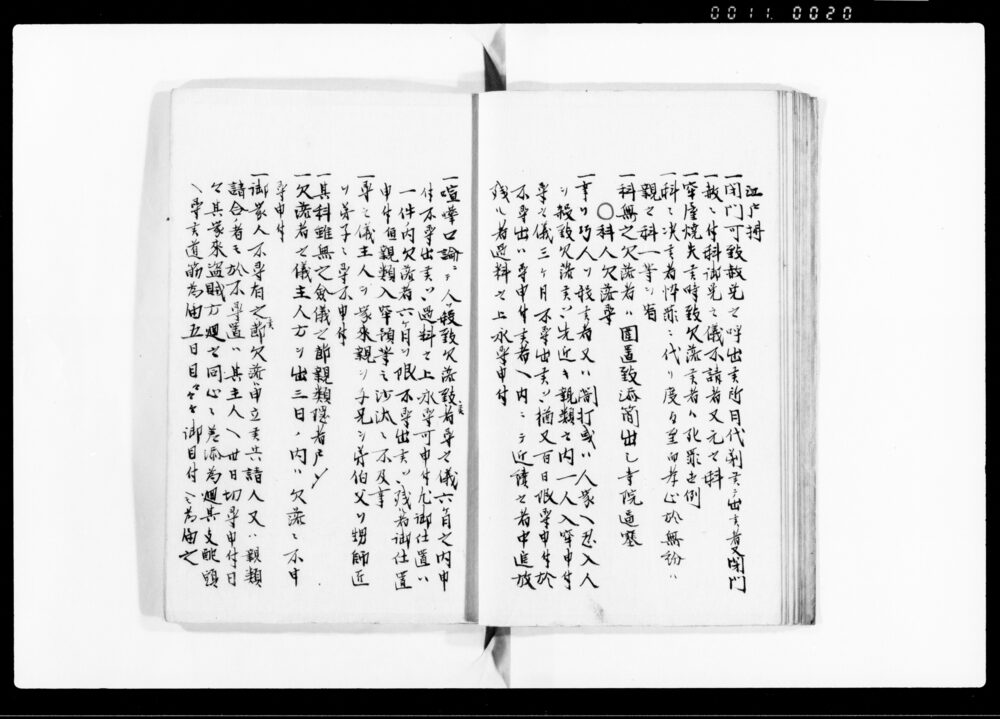 0011.0020
江戸拂
一閉門可致赦免之呼出其所月代剃出者又閉門
一赦ニ付科御免之儀不請者又元之科
一牢屋焼失之時致欠落者ハ死罪之例
一科ニ代り度旨至而孝心於無紛ハ
親之科一等ニ宥
一科無之欠落者ハ圍置致添簡出し寺院逼塞
〇科人欠落尋
一事巧人を殺者又ハ闇打或ハ人家へ忍入人
を殺致欠落ハ先近キ親類之内一人入牢申付
尋之儀三ヶ月不尋出ハ猶又百日限尋申付於
不尋出ハ尋申付者之内ニ而近讀之者中追放
残ル者過料之上永尋申付
一喧嘩口論ニ而人殺致欠落致者尋之儀六ヶ月之内申
付不尋出ハ過料之上永尋可申付尤御仕置ハ
一件内欠落者六ヶ月限不尋出ハ残者御仕置
申付但親類入牢預等之沙汰ニ不及事
一尋之儀主人を家来親を子兄を弟伯父を甥師匠
を弟子ニ尋不申付
一其科雖無之僉儀之節親類隠者戸〆
一欠落者之儀主人方を出三日ノ内ハ欠落ニ不申
尋申付
一御家人不尋有之節欠落申立其請人又ハ親類
請合者於不尋置ハ其主人へ卅日切尋申付日
々其家来盗賊方廻之同心ニ差添為廻其支配頭
へ尋道筋為届五日目々々御目付へ為届之